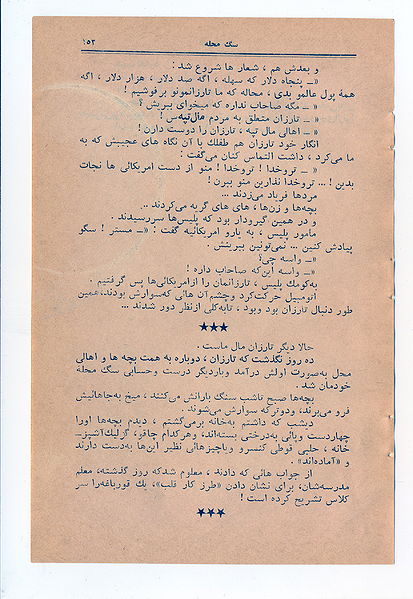 ۱۵۳ سگ محله
و بعدش هم ، شعار ها شروع شد :
«ــ پنجاه دلار که سهله ، اگه صد دلار ، هزار دلار ، اگه
همهٔ پول عالمو بدی ، محاله که ما تارزانمونو بر فوشیم !
«ــ مگه صاحاب نداره که میخوای ببریش ؟
«ــ تارزان متعلق به مردم مال‌تپه‌س !
«ــ اهالی مال تپه ، تارزان را دوست دارن !
انگار خود تارزان هم طفلك با آن نگاه های عجیبش که به
ما می‌کرد ، داشت التماس کنان می‌گفت :
«ــ تروخدا ! تروخدا ! منو از دست امریکائی ها نجات
بدین ! ... تروخدا نذارین منو ببرن !
مردها فریاد می‌زدند ...
بچه‌ها و زن‌ها ، های های گریه می‌کردند ..
و در همین گیرودار بود که پلیس‌ها سررسیدند .
مامور پلیس ، به یارو امریکائیه گفت : «ــ مستر ! سگو
پیادش کنین ... نمی‌تونین ببریش .
«ــ واسه چی؟
«ــ واسه این‌که صاحاب داره !
به‌کومك پلیس ، تارزانمان را ازامریکائی‌ها پس گرفتیم .
اتومبیل حرکت‌کرد وچشم‌آن هائی که‌سوارش بودند،همین
طور دنبال تارزان بود وبود ، تابه‌کلی ازنظر دور شدند ...
★★★
حالا دیگر تارزان مال ماست .
ده روز نگذشت که تارزان ، دوباره به همت بچه ها و اهالی
محل به‌صورت اولش درآمد وباردیگر درست وحسابی سگ محلهٔ
خودمان شد .
بچه‌ها صبح تاشب سنگ بارانش می‌کنند ، میخ به‌جاهائیش
فرو می‌برند، ودوترکه سوارش می‌شوند .
دیشب که داشتم به‌خانه برمی‌گشتم ، دیدم بچه‌ها اورا
چهاردست وپائی به‌درختی بسته‌اند، وهرکدام چاقو، گزلیك‌آشپز‌ــ
خانه ، حلبی قوطی کنسرو ویاچیزهائی نظیر این‌ها به‌دست دارند
و «آماده‌اند» .
از جواب هائی که دادند ، معلوم شدکه روز گذشته، معلم
مدرسه‌شان، برای نشان دادن «طرز کار قلب»، یك قورباغه‌را سر
کلاس تشریح کرده است !
★★★